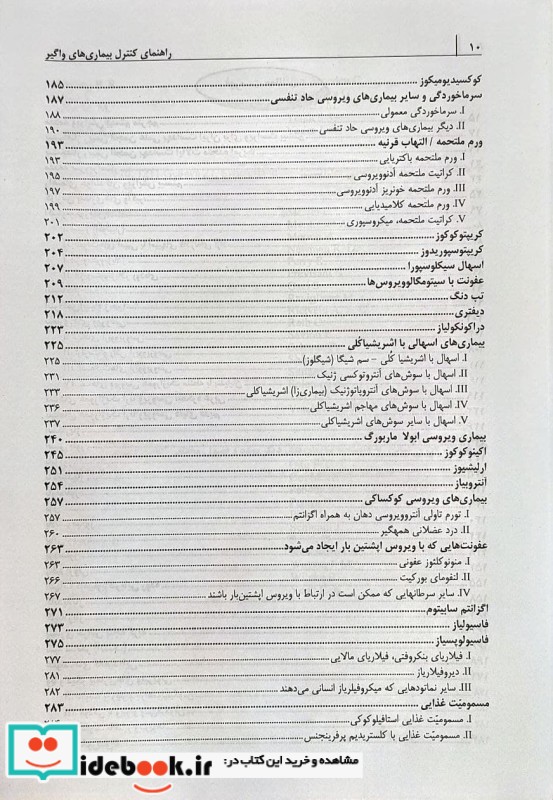 ۱۰ راهنمای کنترل بیماری‌های واگیر
کوکسیدیومیکوز ۱۸۵
سرماخوردگی و سایر بیماری‌های ویروسی حاد تنفسی ۱۸۷
I. سرماخوردگی معمولی ۱۸۸
II. دیگر بیماری‌های ویروسی حاد تنفسی ۱۹۰
ورم ملتحمه / التهاب قرنیه ۱۹۳
I. ورم ملتحمه باکتریایی ۱۹۳
II. کراتیت ملتحمه آدنوویروسی ۱۹۵
III. ورم ملتحمه خونریز آدنوویروسی ۱۹۷
IV. ورم ملتحمه کلامیدیایی ۱۹۹
V. کراتیت ملتحمه، میکروسپوری ۲۰۱
کریپتوکوکوز ۲۰۲
کریپتوسپوریدوز ۲۰۴
اسهال سیکلوسپورا ۲۰۷
عفونت با سیتومگالوویروس‌ها ۲۰۹
تب دنگ ۲۱۲
دیفتری ۲۱۸
دراکونکولیاز ۲۲۳
بیماری‌های اسهالی با اشریشیاکُلی ۲۲۵
I. اسهال با اشریشیا کُلی – سم شیگا (شیگلوز) ۲۲۵
II. اسهال با سوش‌های آنتروتوکسی ژنیک ۲۳۱
III. اسهال با سوش‌های آنتروپاتوژنیک (بیماری‌زا) اشریشیاکلی ۲۳۳
IV. اسهال با سوش‌های مهاجم اشریشیاکلی ۲۳۶
V. اسهال با سایر سوش‌های اشریشیاکلی ۲۳۷
بیماری ویروسی ابولا ماربورگ ۲۴۰
اکینوکوکوز ۲۴۵
ارلیشیوز ۲۵۱
آنتروبیاز ۲۵۴
بیماری‌های ویروسی کوکساکی ۲۵۷
I. تورم تاولی آنتروویروسی دهان به همراه اگزانتم ۲۵۷
II. درد عضلانی همهگیر ۲۶۰
عفونت‌هایی که با ویروس اپشتین بار ایجاد می‌شود ۲۶۳
I. منونوکلئوز عفونی ۲۶۳
II. لنفومای بورکیت ۲۶۶
IV. سایر سرطانهایی که ممکن است در ارتباط با ویروس اپشتین‌بار باشند ۲۶۷
اگزانتم سابیتوم ۲۷۱
فاسیولیاز ۲۷۳
فاسیولوپسیاز ۲۷۵
I. فیلاریای بنکروفتی، فیلاریای مالایی ۲۷۷
II. دیروفیلاریاز ۲۸۱
III. سایر نماتودهایی که میکروفیلریاز انسانی می‌دهند ۲۸۲
مسمومیّت غذایی ۲۸۳
I. مسمومیّت غذایی استافیلوکوکی
II. مسمومیّت غذایی با کلستریدیم پرفرینجنس
مشاهده و خرید این کتاب در:
idebook.ir